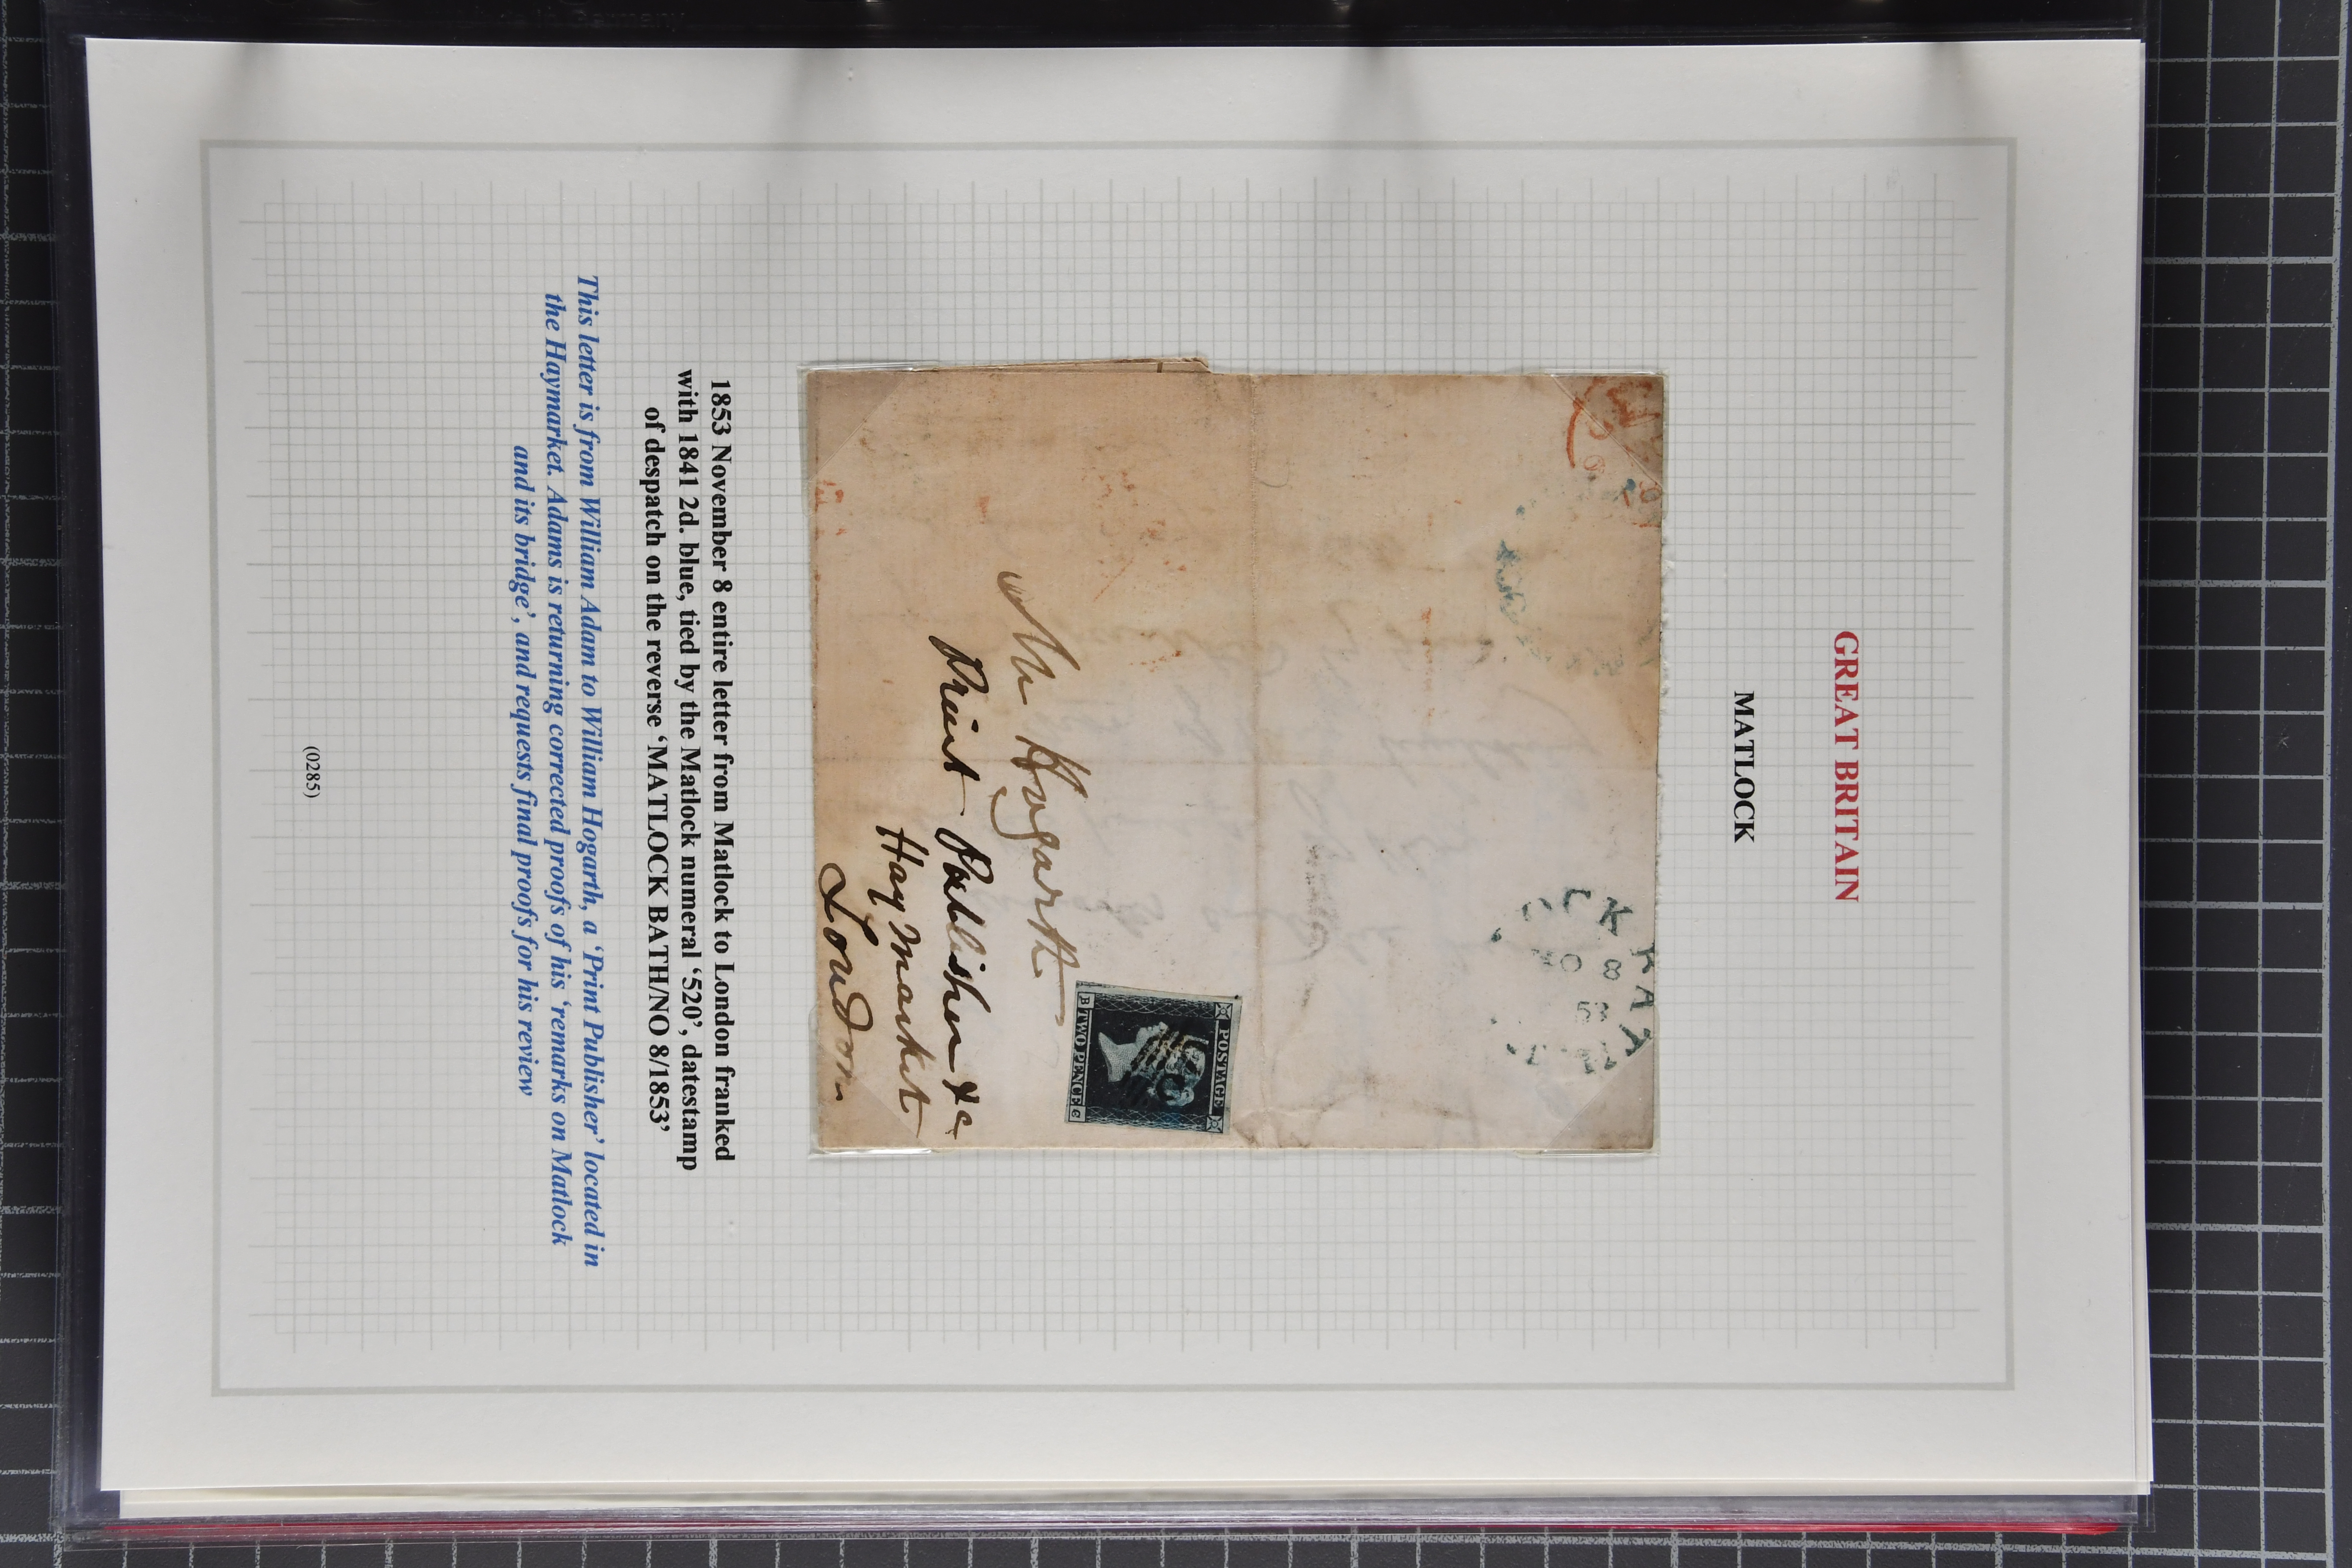 GREAT BRITAIN
MATLOCK
CK BAT
NO 8
53
POSTAGE
TWO PENCE
B C
Mr Hogarth
Print Publisher &c
Haymarket
London
1853 November 8 entire letter from Matlock to London franked
with 1841 2d. blue, tied by the Matlock numeral ‘520’, datestamp
of despatch on the reverse ‘MATLOCK BATH/NO 8/1853’
This letter is from William Adam to William Hogarth, a ‘Print Publisher’ located in
the Haymarket. Adams is returning corrected proofs of his ‘remarks on Matlock
and its bridge’, and requests final proofs for his review
(0285)